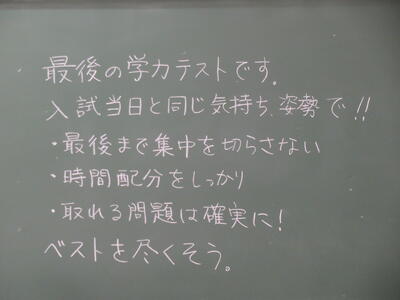 最後の学力テストです。
入試当日と同じ気持ち、姿勢で!!
・最後まで集中を切らさない
・時間配分をしっかり
・取れる問題は確実に!
ベストを尽くそう。